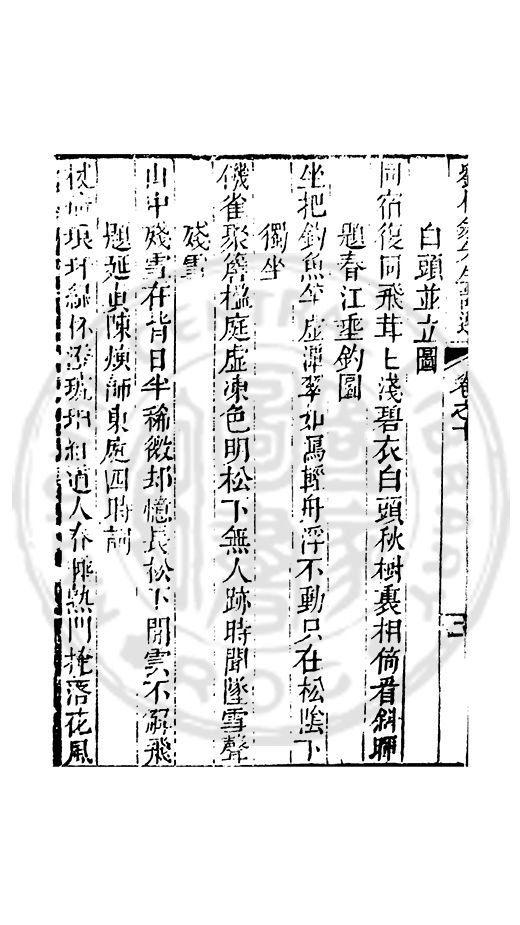 白頭並立圖
同宿復同飛茸七淺碧衣白頭秋樹裏相倚看斜暉
題春江垂釣圖
坐把釣魚竿虛潭翠如瀉輕舟浮不動只在松陰下
獨坐
饑雀聚簷楹庭虛凍色明松下無人跡時聞墜雪聲
殘雪
山中殘雪在背日半稀微却憶長松下閒雲不解飛
題延真陳煉師東庭四時詞
琅玕綠 琅玕紅道人春 熟門掩落花風
卷之十
三